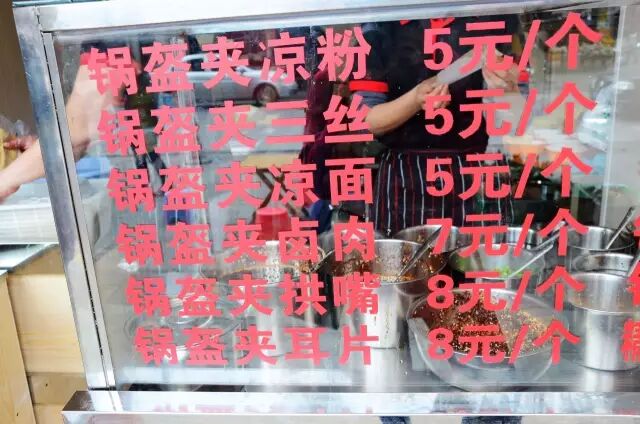 锅盔夹凉粉 5元/个
锅盔夹三丝 5元/个
锅盔夹凉面 5元/个
锅盔夹卤肉 7元/个
锅盔夹拱嘴 8元/个
锅盔夹耳片 8元/个